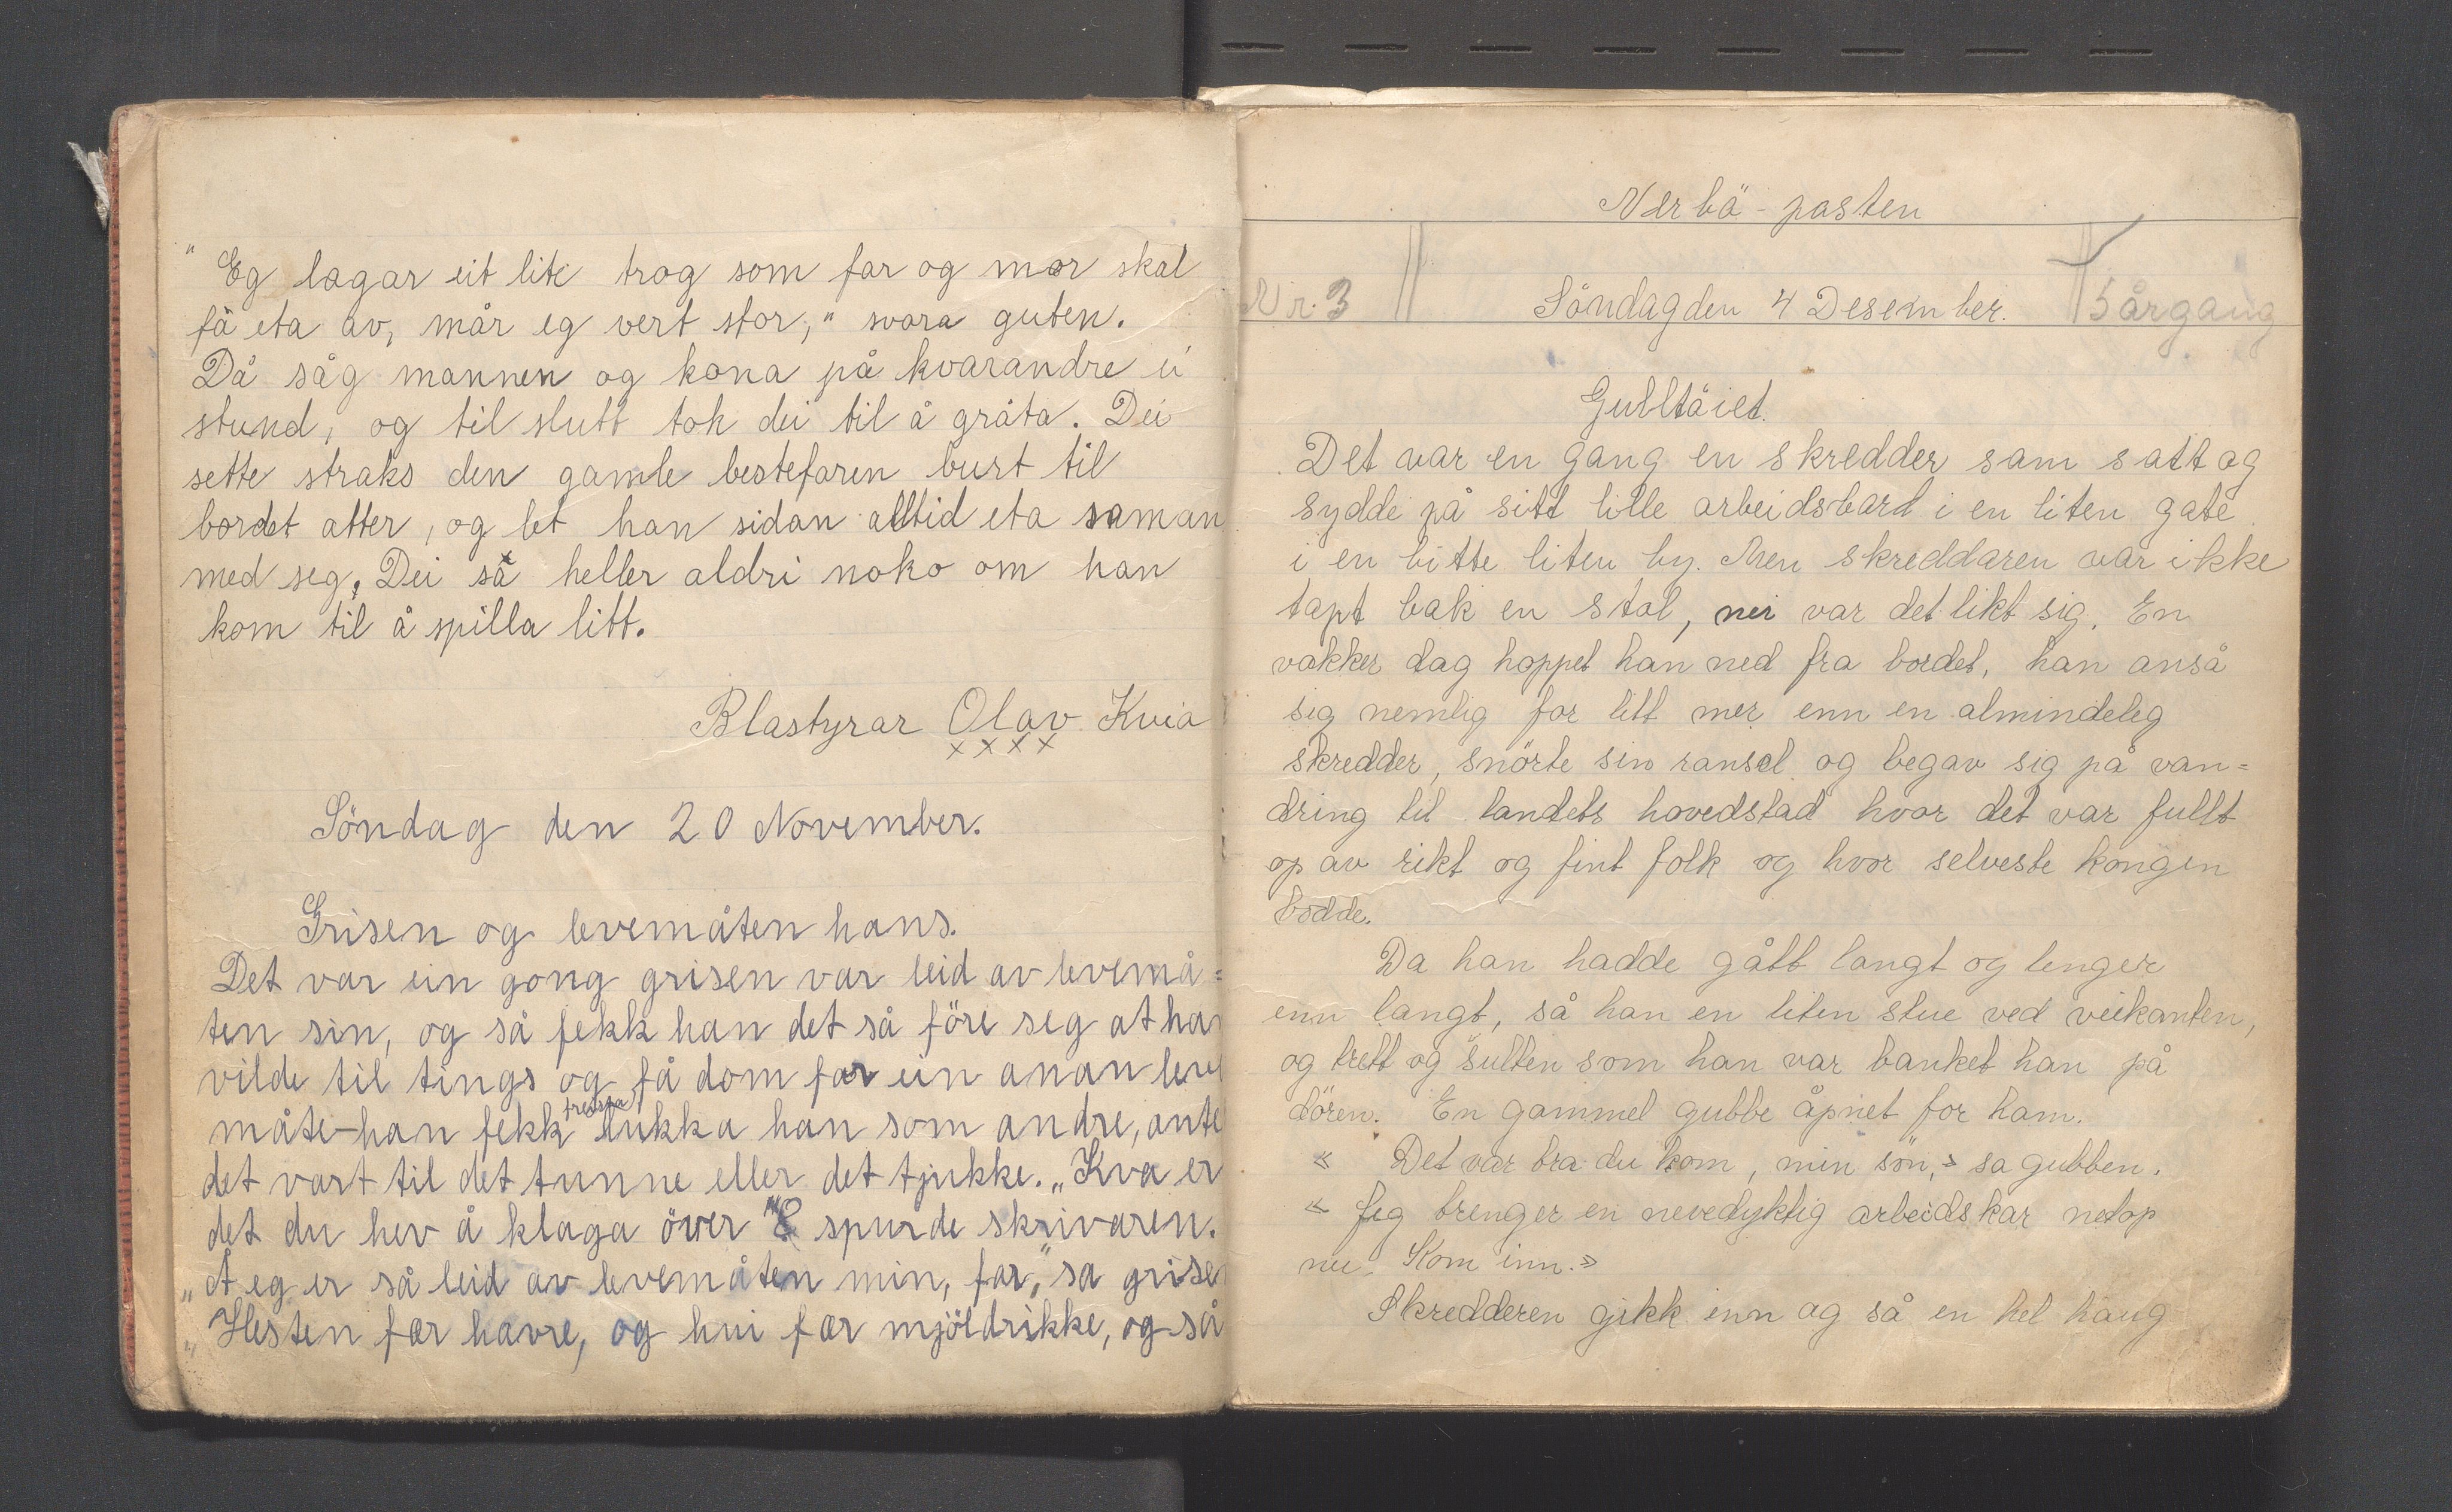 "Eg lagar eit lite trog som far og mor skal
få eta av, mår eg vert stor," svara guten.
Då såg mannen og kona på kvarandre ei
stund, og til slutt tok dei til å gråta. Dei
sette straks den gamle bestefaren burt til
bordet atter, og let han sidan alltid eta saman
med seg. Dei sa heller aldri noko om han
kom til å spilla litt.
Blastyrar Olav Kvia
xxxx
Söndag den 20 November.
Grisen og levemåten hans.
Det var ein gong grisen var leid av levemå=
ten sin, og så fekk han det så före seg at han
vilde til tings og få dom for ein anan leve
måte-han fekk treska lukka han som andre, ante
det vart til det tunne eller det tjukke. „Kva er
det du hev å klaga över" spurde skrivaren.
„Å eg er så leid av levemåten min, far," sa grisen
„Hesten fær havre, og kui fær mjöldrikke, og så
Nerbö-posten
Nr. 3 Söndag den 4 Desember. 5 årgang
Gulltöiet.
Det var en gang en skredder som satt og
sydde på sitt lille arbeidsbord i en liten gate
i en bitte liten by. Men skreddaren var ikke
tapt bak en stol, nei var det likt sig. En
vakker dag hoppet han ned fra bordet, han anså
sig nemlig for litt mer enn en almindeleg
skredder, snörte sin ransel og begav sig på van=
dring til landets hovedstad hvor det var fullt
op av rikt og fint folk og hvor selveste kongen
bodde.
Da han hadde gått langt og lenger
enn langt, så han en liten stue ved veikanten,
og trett og sulten som han var banket han på
dören. En gammel gubbe åpnet for ham.
« Det var bra du kom, min sön,» sa gubben.
« Jeg trenger en nevedyktig arbeidskar netop
nu. Kom inn.»
Skredderen gikk inn og så en hel haug